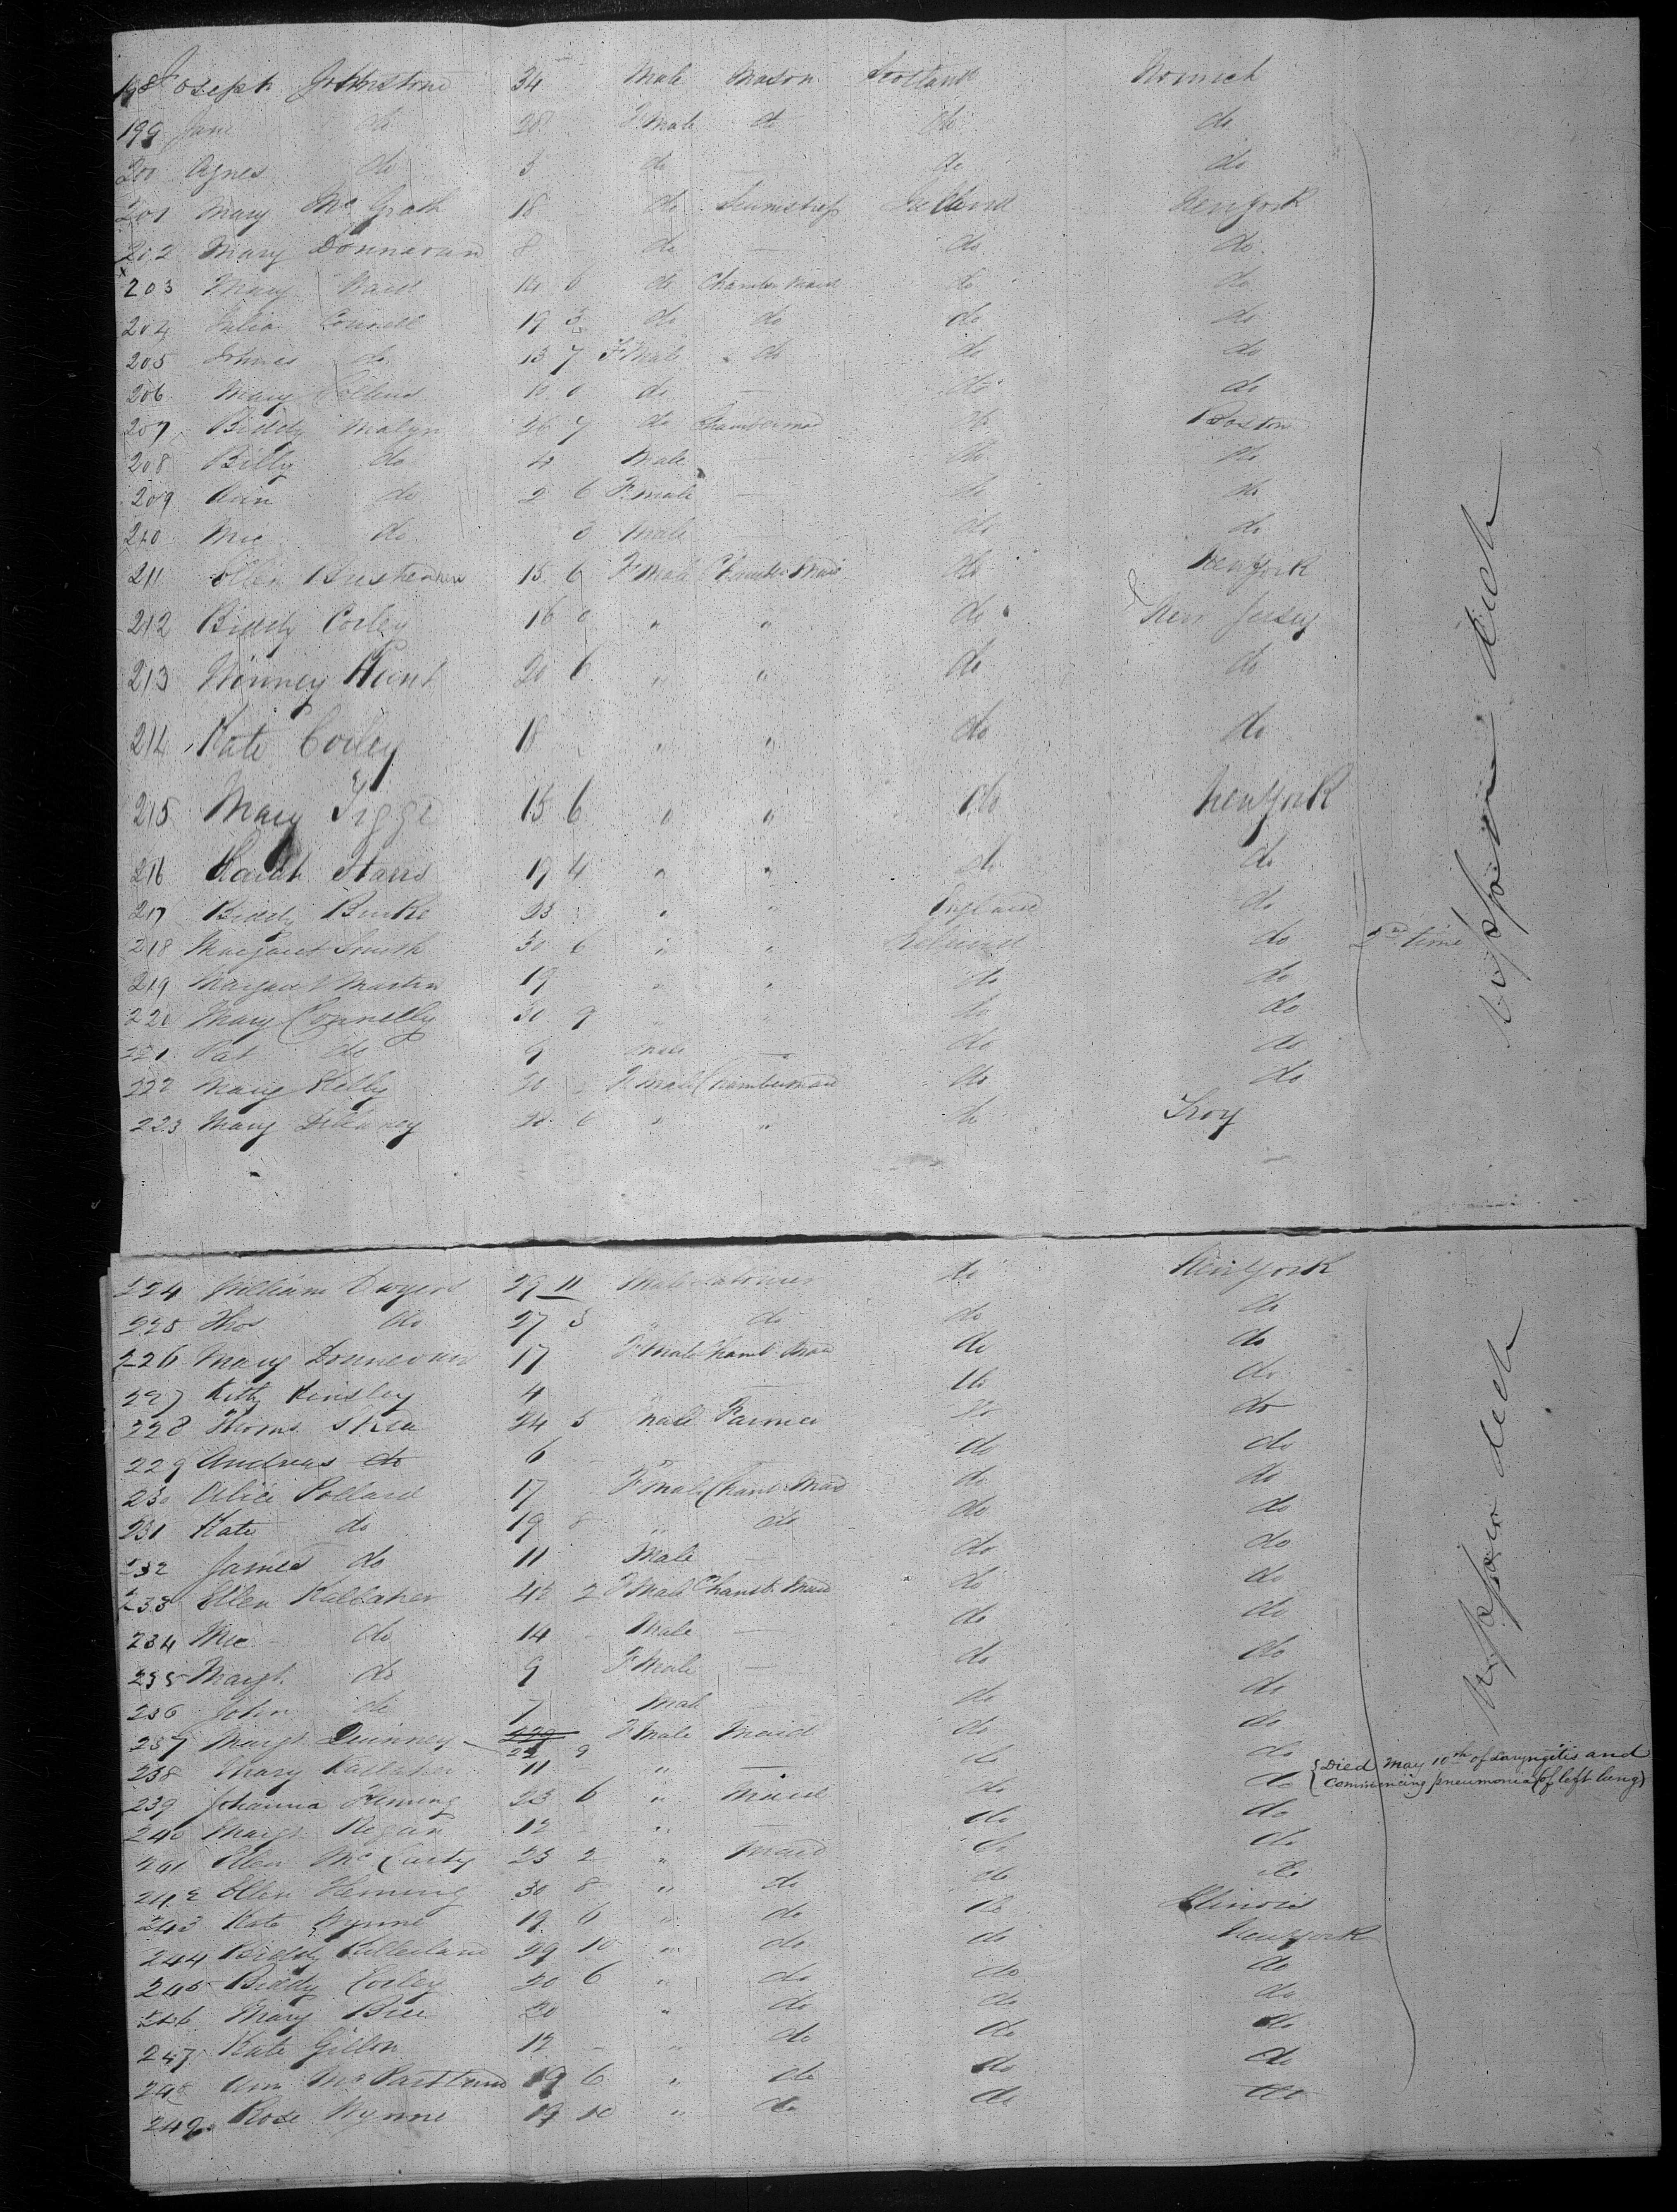 198 Joseph Johnstone 34 Male Mason Scotland Norwich
199 Jane do 28 F.Male do do do
200 Agnes do 3 do do do
201 Mary Mc Grath 18 do Seamstress Ireland New York
202 Mary Donnavan 8 do — do do
203 Mary Ward 14 6 do Chamber Maid do do
204 Julia Connell 19 3 do do do do
205 do 13 7 F Male do do do
206 Mary Collins 10 0 do — do do
207 Biddy Malyn 26 7 do Chambermad do Boston
208 Billy do 4 Male — do do
209 Ann do 2 6 F.male — do do
210 Mic do 8 Male do do
211 Ellen 15 6 F Male Chamb. Maid do New York
212 Biddy Corley 16 0 " " do New Jersey
213 Winney Hunt 20 6 " " do do
214 Kate Corley 18 " " do do
215 Mary 15 6 " " do New York
216 Sarah Starrs 19 4 " " do do
217 Biddy Burke 23 " " England do
218 Margaret Smith 30 6 " " Ireland do 2nd time
219 Margaret Martin 19 " " do do
220 Mary Connelly 30 9 " " do do
221 Pat do 9 Male — do do
222 Mary Kelly 20 F.Male Chambermaid do do
223 Mary Dillaney 28 6 " " do Troy
Upper deck
224 William Dwyer 29 11 Male Labourer do New York
225 Thos do 27 3 " do do do
226 Mary Donnevan 17 F.Male Chamb. Maid do do
227 Kitty Kinsley 4 " — do do
228 Thoms Shea 24 5 Male Farmer do do
229 Andreas do 6 " — do do
230 Alice Pollard 17 F Male Chamb. Maid do do
231 Kate do 19 8 " do do do
232 James do 11 Male — do do
233 Ellen Kallaher 48 2 F Male Chamb. Maid do do
234 Mic do 14 Male — do do
235 Margt. do 9 F Male — do do
236 John do 7 Male — do do
237 Margt. Quinney 22 9 F Male Maid do do
238 Mary Kallaher 11 " — do do { Died May 10th of Laryngitis and
commencing pneumonia (of left lung)
239 Johanna Fleming 23 6 " Maid do do
240 Margt. Regan 12 " — do do
241 Ellen Mc Carty 23 2 " Maid do do
242 Ellen Fleming 30 8 " do do do
243 Kate Wynne 19 6 " do do Illinois
244 Biddy 29 10 " do do New York
245 Biddy Corley 20 6 " do do do
246 Mary 20 " do do do
247 Kate Gillen 12 " do do do
248 Ann Mc Partland 19 6 " do do do
249 Rose Wynne 17 10 " do do do
Upper deck